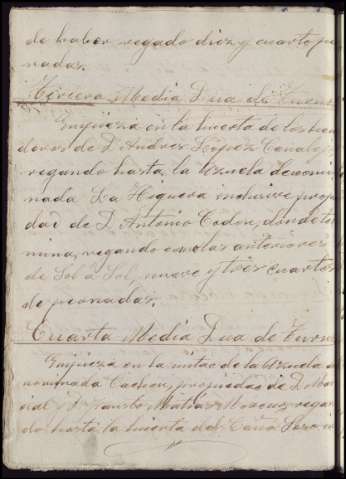 de haber regado diez y cuarto peo
nadas.
Tercera Media Dua de
Empieza en la huerta de los here
deros de D. Andres Lopez Canalejo
regando hasta la Azuela denomi
nada La Higuera inclusive propie
dad de D. Antonio donde ter
mina, regando como las anteriores
de Sol á Sol, nueve y tres cuartos
de peonadas.
Cuarta Media Dua de
Empieza en la mitad de la Azuela de
nominada propiedad de D. Mar
cial y Fausto Matias regan
do hasta la huerta del